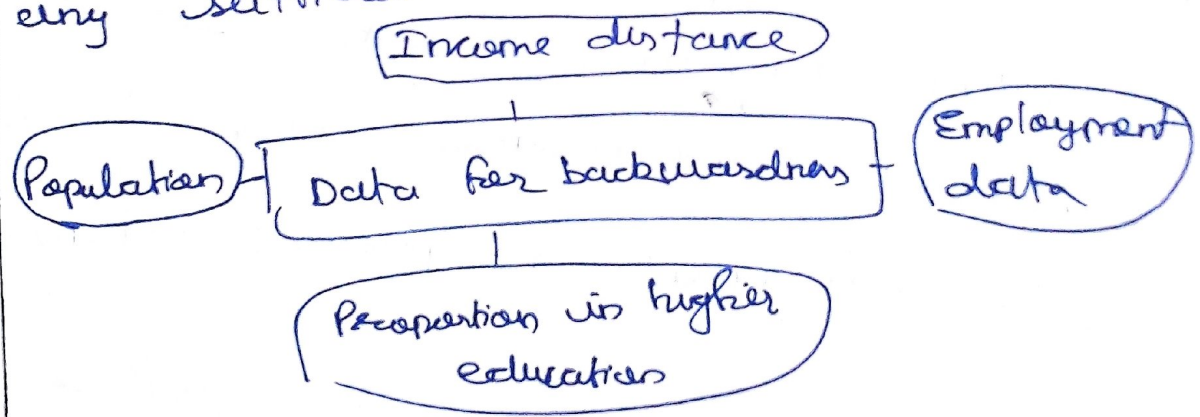 any
Income distance
Population
Data for backwardness
Employment
data
Proportion in higher
education